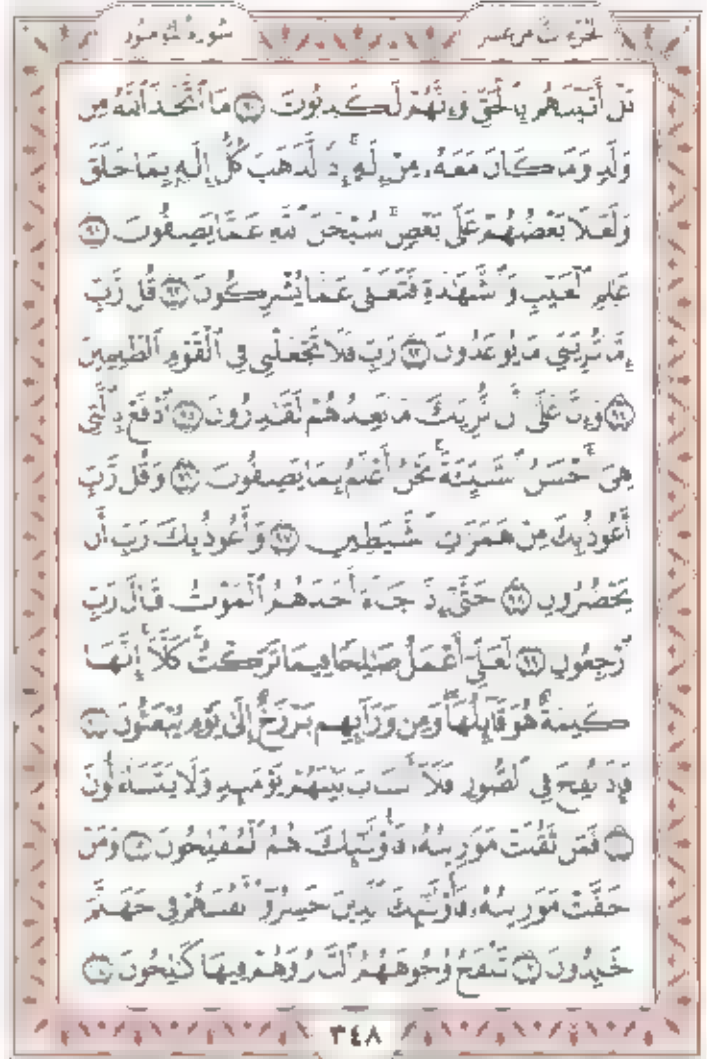 الجزء الثامن عشر سورة المؤمنون
بَلْ أَتَيْنَٰهُم بِٱلْحَقِّ وَإِنَّهُمْ لَكَٰذِبُونَ ۝٩٠ مَا ٱتَّخَذَ ٱللَّهُ مِن
وَلَدٍ وَمَا كَانَ مَعَهُۥ مِنْ إِلَٰهٍ ۚ إِذًا لَّذَهَبَ كُلُّ إِلَٰهٍۭ بِمَا خَلَقَ
وَلَعَلَا بَعْضُهُمْ عَلَىٰ بَعْضٍ ۚ سُبْحَٰنَ ٱللَّهِ عَمَّا يَصِفُونَ ۝٩١
عَٰلِمِ ٱلْغَيْبِ وَٱلشَّهَٰدَةِ فَتَعَٰلَىٰ عَمَّا يُشْرِكُونَ ۝٩٢ قُل رَّبِّ
إِمَّا تُرِيَنِّي مَا يُوعَدُونَ ۝٩٣ رَبِّ فَلَا تَجْعَلْنِي فِي ٱلْقَوْمِ ٱلظَّٰلِمِينَ
۝٩٤ وَإِنَّا عَلَىٰٓ أَن نُّرِيَكَ مَا نَعِدُهُمْ لَقَٰدِرُونَ ۝٩٥ ٱدْفَعْ بِٱلَّتِي
هِيَ أَحْسَنُ ٱلسَّيِّئَةَ ۚ نَحْنُ أَعْلَمُ بِمَا يَصِفُونَ ۝٩٦ وَقُل رَّبِّ
أَعُوذُ بِكَ مِنْ هَمَزَٰتِ ٱلشَّيَٰطِينِ ۝٩٧ وَأَعُوذُ بِكَ رَبِّ أَن
يَحْضُرُونِ ۝٩٨ حَتَّىٰٓ إِذَا جَآءَ أَحَدَهُمُ ٱلْمَوْتُ قَالَ رَبِّ
ٱرْجِعُونِ ۝٩٩ لَعَلِّيٓ أَعْمَلُ صَٰلِحًا فِيمَا تَرَكْتُ ۚ كَلَّآ ۚ إِنَّهَا
كَلِمَةٌ هُوَ قَآئِلُهَا ۖ وَمِن وَرَآئِهِم بَرْزَخٌ إِلَىٰ يَوْمِ يُبْعَثُونَ ۝١٠٠
فَإِذَا نُفِخَ فِي ٱلصُّورِ فَلَآ أَنسَابَ بَيْنَهُمْ يَوْمَئِذٍ وَلَا يَتَسَآءَلُونَ
۝١٠١ فَمَن ثَقُلَتْ مَوَٰزِينُهُۥ فَأُو۟لَٰٓئِكَ هُمُ ٱلْمُفْلِحُونَ ۝١٠٢ وَمَنْ
خَفَّتْ مَوَٰزِينُهُۥ فَأُو۟لَٰٓئِكَ ٱلَّذِينَ خَسِرُوٓا۟ أَنفُسَهُمْ فِي جَهَنَّمَ
خَٰلِدُونَ ۝١٠٣ تَلْفَحُ وُجُوهَهُمُ ٱلنَّارُ وَهُمْ فِيهَا كَٰلِحُونَ ۝١٠٤
٣٤٨